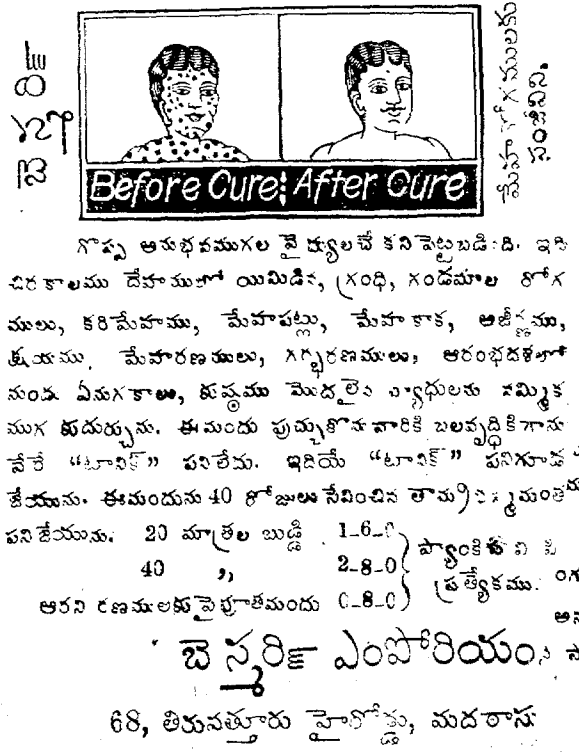 మహారోగములకు
నంజీవిని.
Before Cure After Cure
గొప్ప అనుభవముగల వైద్యులచే కనిపెట్టబడినది. ఇది
చిరకాలము దేహములో యిమిడిన, గ్రంధి, గండమాల రోగ
ములు, కరిమేహము, మేహపట్లు, మేహకాక, అజీర్ణము,
క్షయము, మేహరణములు, గర్భరణములు, ఆరంభదశలో
నుండు ఏనుగకాలు, కుష్ఠము మొదలైన వ్యాధులను నమ్మిక
ముగ కుదుర్చును. ఈమందు పుచ్చుకొనువారికి బలవృద్ధికిగాను
వేరే “టానిక్” పనిలేదు. ఇదియే “టానిక్” పనిగూడ
జేయును. ఈమందును 40 రోజులు సేవించిన
పనిజేయును. 20 మాత్రల బుడ్డి 1-6-0
40 ,, 2-8-0
ప్రత్యేకము.
ఆరని రణములకు పైపూతమందు 0-8-0
ఎంపోరియం,
68, తిరుపత్తూరు హైరోడ్డు, మదరాసు